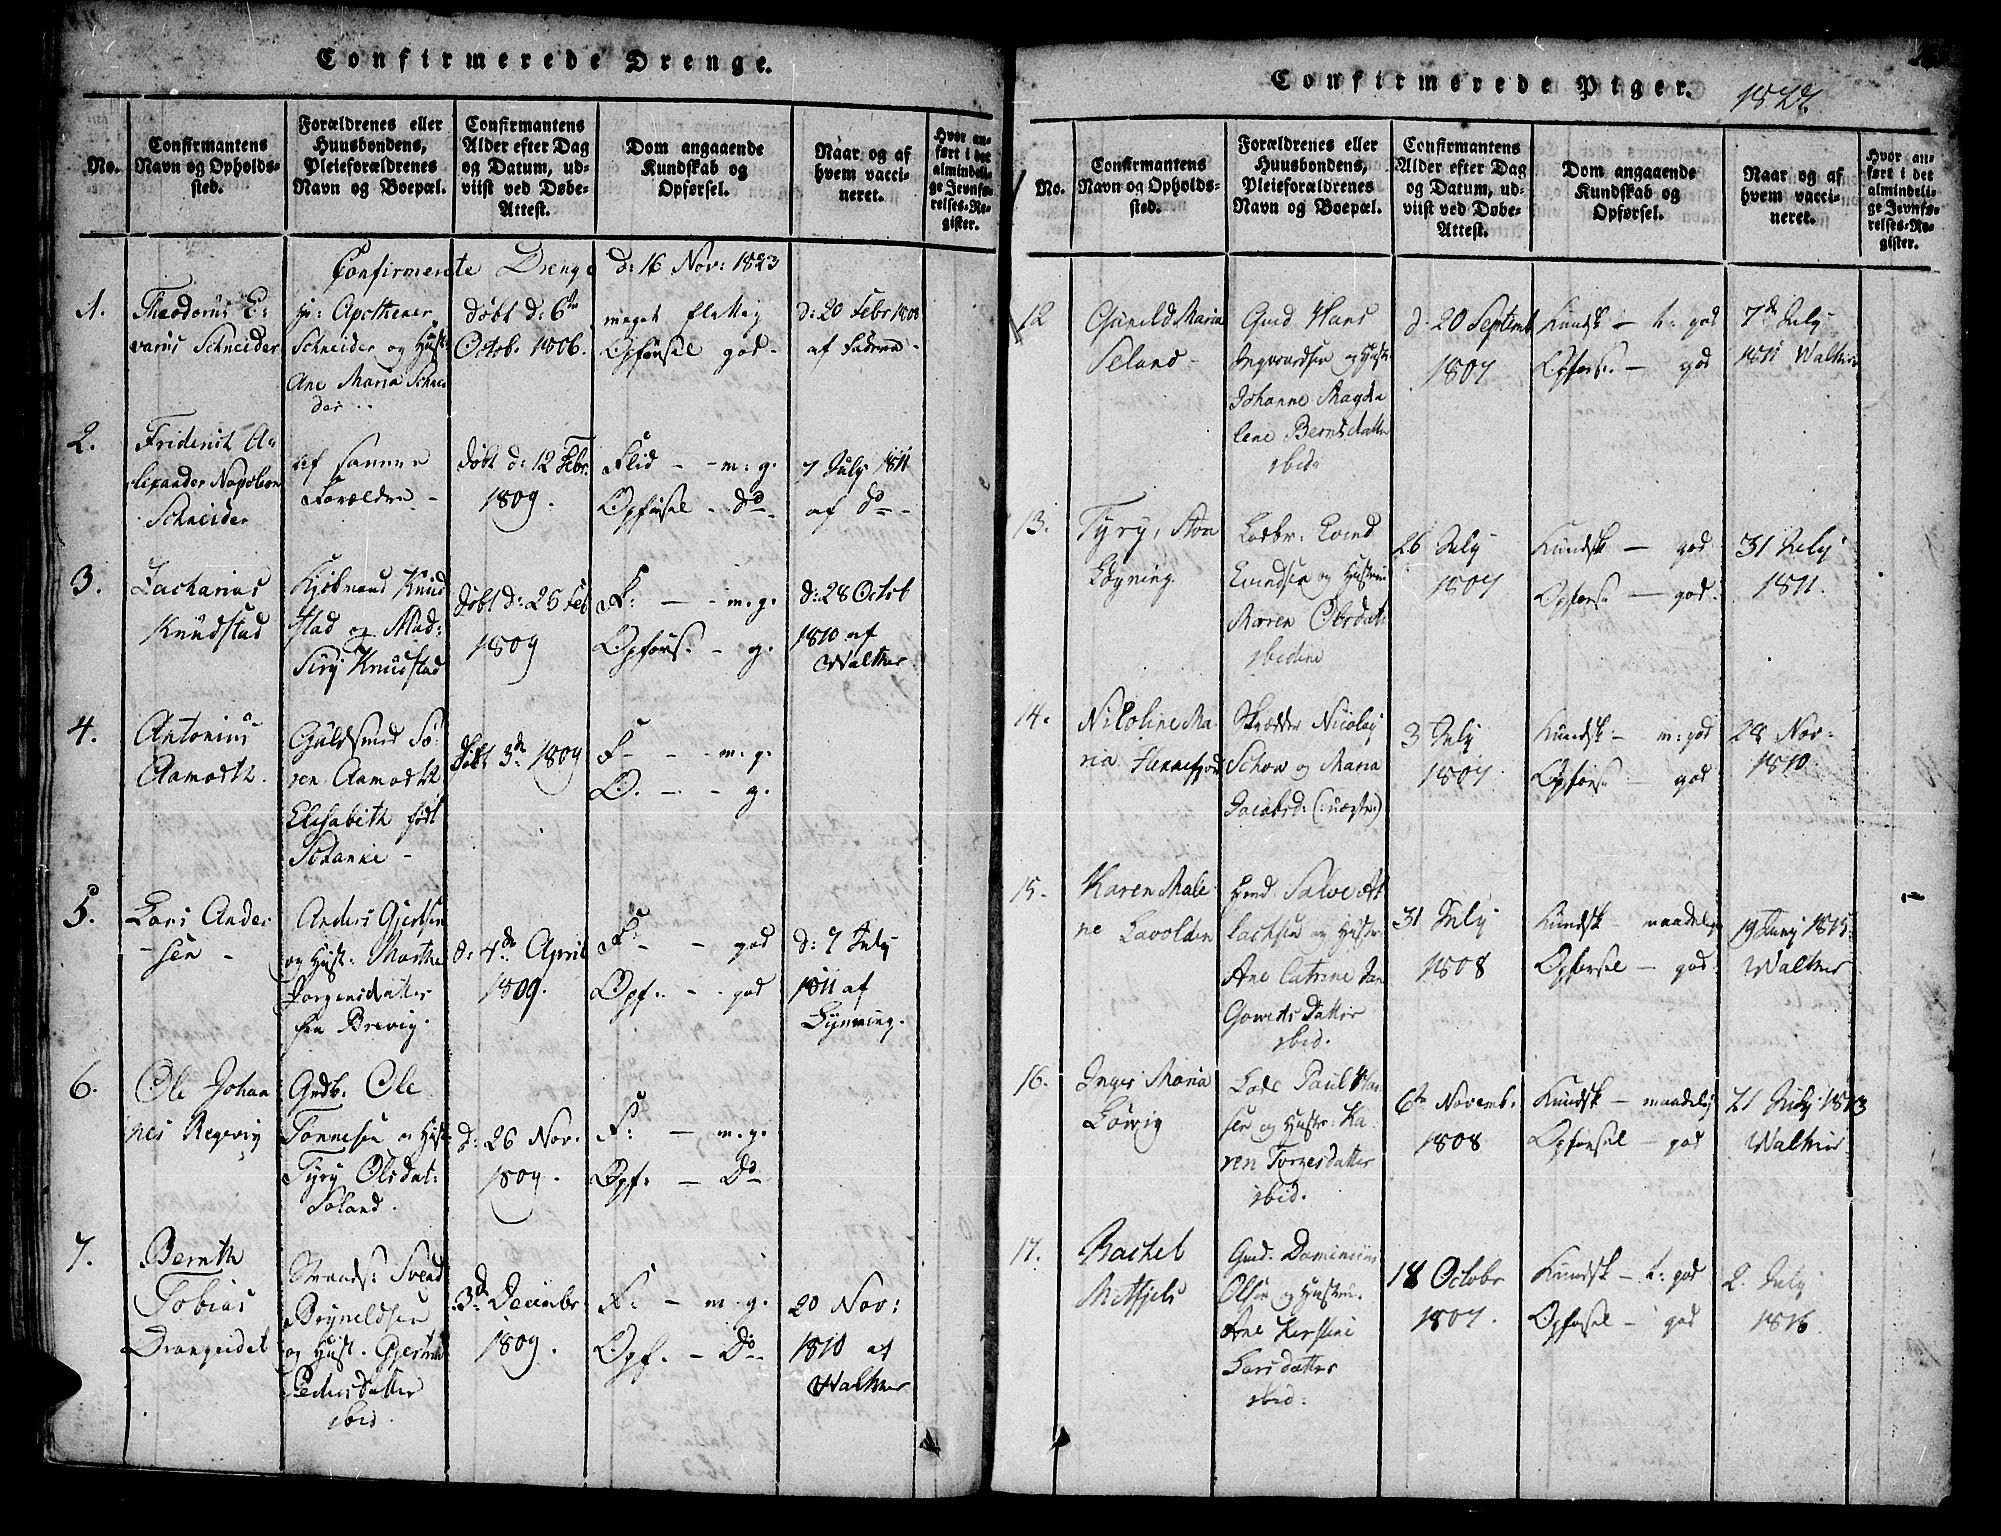 Confirmerede Drenge.
No.
Confirmantens
Navn og Opholds-
sted.
Forældrenes eller
Huusbondens,
Pleieforældrenes
Navn og Boepæl.
Confirmantens
Alder efter Dag
og Datum, ud-
viist ved Døbe-
Attest.
Dom angaaende
Kundskab og
Opførsel.
Naar og af
hvem vacci-
neret.
Hvor an-
ført i det
almindeli-
ge Jevnfø-
relses-Re-
gister.
Confirmerete Drenge d: 16 Nov: 1823
1.
Theodorus E-
varus Schneider
Apothener
Schneider og Hust
Ane Maria Schnei
der
døbt d: 6te
Octob. 1806.
meget flittig
Opførsel god
d: 20 Febr 1808
af Faderen
2.
Friderich A-
lexander Napoleon
Schneider
af samme
Forældre
døbt d: 12 Febr.
1809.
Flid - - m: g.
Opførsel - do
7 July 1811
af do
3.
Zacharias
Knudstad
Kjøbmand Knud
stad og Mad:
Siry Knudstad
døbt d: 26 Feb
1809
F: - - m. g.
Opførs. - g.
d: 28 Octob
1810 af
Walther
4.
Antonius
Aamodth.
Guldsmed Sø-
ren Aamodth
Elisabeth født
døbt 3de 1809
F - - m. g.
O. - - g.
5.
Lars Ander
sen
Anders Gjertsen
og Hust: Marthe
Jørgensdatter
fra Brevig.
d: 4de April
1809.
F: - - god
Opf. - - god
d: 7 July
1811 af
6.
Ole Johan
nes Regevig
Grdb. Ole
Tønnesen og Hust
Tyry Olsdat:
Søland.
d: 26 Nov.
1809.
F: - m. g.
Opf: - Do
7.
Bernth
Tobias
Drangeidet
Strands: Svend
Reyneldsen
og Hust. Gjertrud
Pedersdatter
ibid.
3de Decembr.
1809.
F: - m. g.
Opf. - Do
20 Nov:
1810 af
Walther
Confirmerede Piger.
No.
Confirmantens
Navn og Opholds-
sted.
Forældrenes eller
Huusbondens,
Pleieforældrenes
Navn og Boepæl.
Confirmantens
Alder efter Dag
og Datum, ud-
viist ved Døbe-
Attest.
Dom angaaende
Kundskab og
Opførsel.
Naar og af
hvem vacci-
neret.
Hvor an-
ført i det
almindeli-
ge Jevnfø-
relses-Re-
gister.
12
Gunild Maria
Seland
Gmd Hans
Ingvardsen og Hustr.
Johanne Magda
lene Berntsdatter
ibid.
d. 20 Septemb
1807
Kundsk - t: god
Opførs. - god
7de July
1811 Walther
13.
Tyry, Stoe
Løgning.
Lodbr: Evind
Evindsen og Hustru
Maren Olsdat:
ibidine
26 July
1807
Kundsk - god
Opførs - god.
31 July
1811.
14.
Nicoline Ma-
ria
Skrædder Nicolay
Schow og Maria
Jacobsd:
3 July
1807
Kundsk - m: god
Opførs - god
28 Nov.
1810.
15.
Karen Male-
ne Lavolden
Salve At
lachsen og Hustr:
Ane Catrine
Datter
ibid.
31 July
1808
Kundsk - maadelig
Opførsel - god
19 Juny 1815
Walther
16.
Inger Maria
Løvvig
Lods Paul Han
sen og Hustr: Ka-
ren Torgesdatter
ibid.
6te Novemb.
1808
Kundsk - maadelig
Opførsel - god
21 July 1813
Walther
17.
Rachel
Mitfjels
Gmd. Dominicus
Olsen og Hustru.
Ane Kerstine
Larsdatter
ibid:
18 Octobr
1807.
Kundsk - t: god
Opførsel - god
2. July
1816